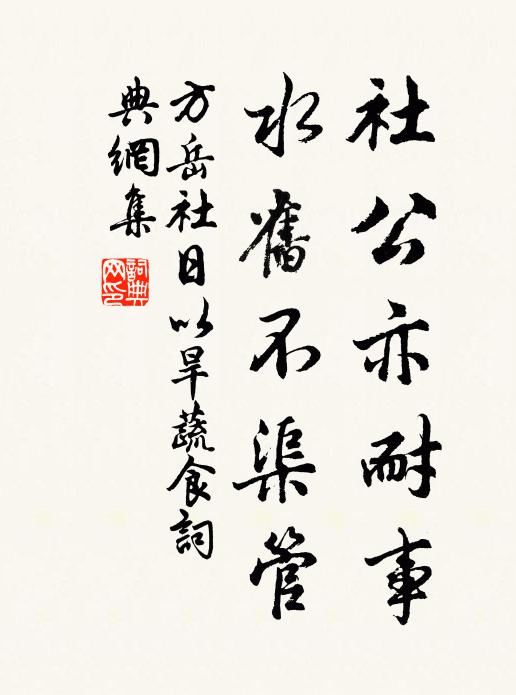 社公亦耐事
水旧不渠管
方岳社日以旱蔬食詞
典網集
詞典
网印